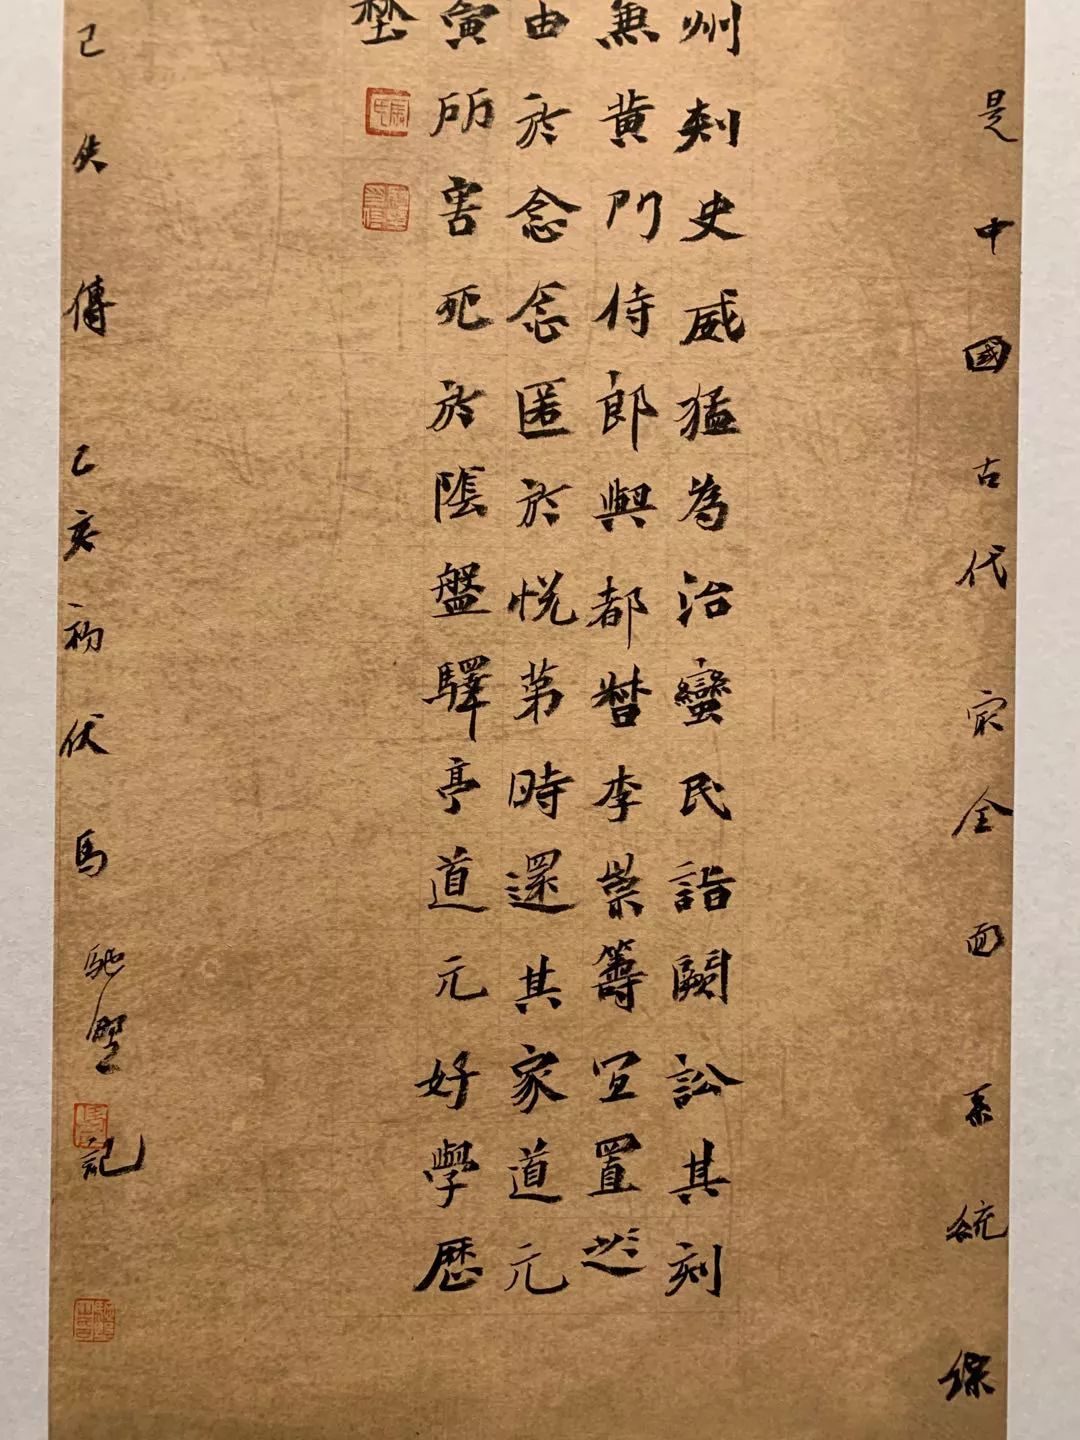 是中國古代最全面系統綜
州刺史威猛為治蠻民詣闕訟其刻
無黃門侍郎與都督李崇籌宜置之
由於念念匿於悅第時還其家道元
寅所害死於陰盤驛亭道元好學歷
堅
已失傳己亥初伏馬馳野記